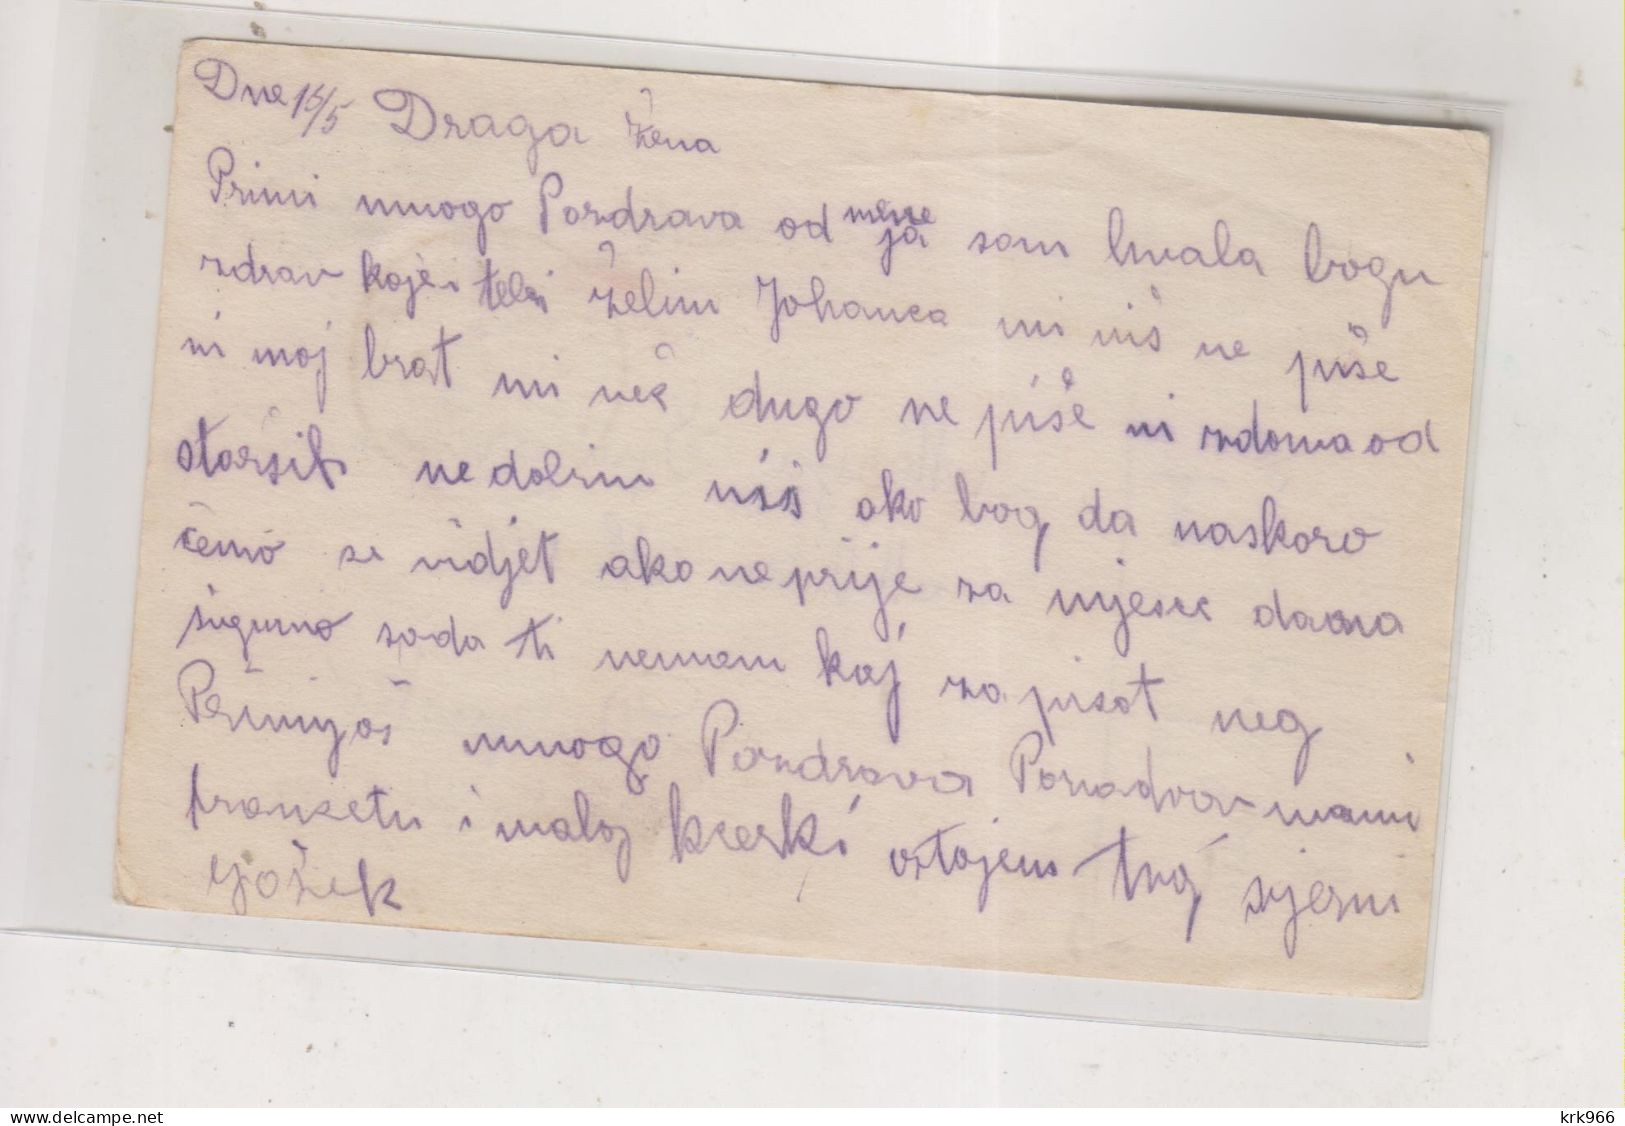 Dne 15/5 Draga žena
Primi mnogo Pozdrava od mene ja sam hvala bogu
zdrav koje i tebi želim Johanca mi niš ne piše
ni moj brat mi več dugo ne piše ni zdoma od
starših ne dobim niš ako bog da naskoro
čemo se vidjet ako ne prije za mjesec dana
sigurno sada ti nemam kaj za pisat neg
mnogo Pozdrava Pozdrav mami
francetu i maloj kcerki ostajem tvoj vjerni
Jožek
krk966
www.delcampe.net